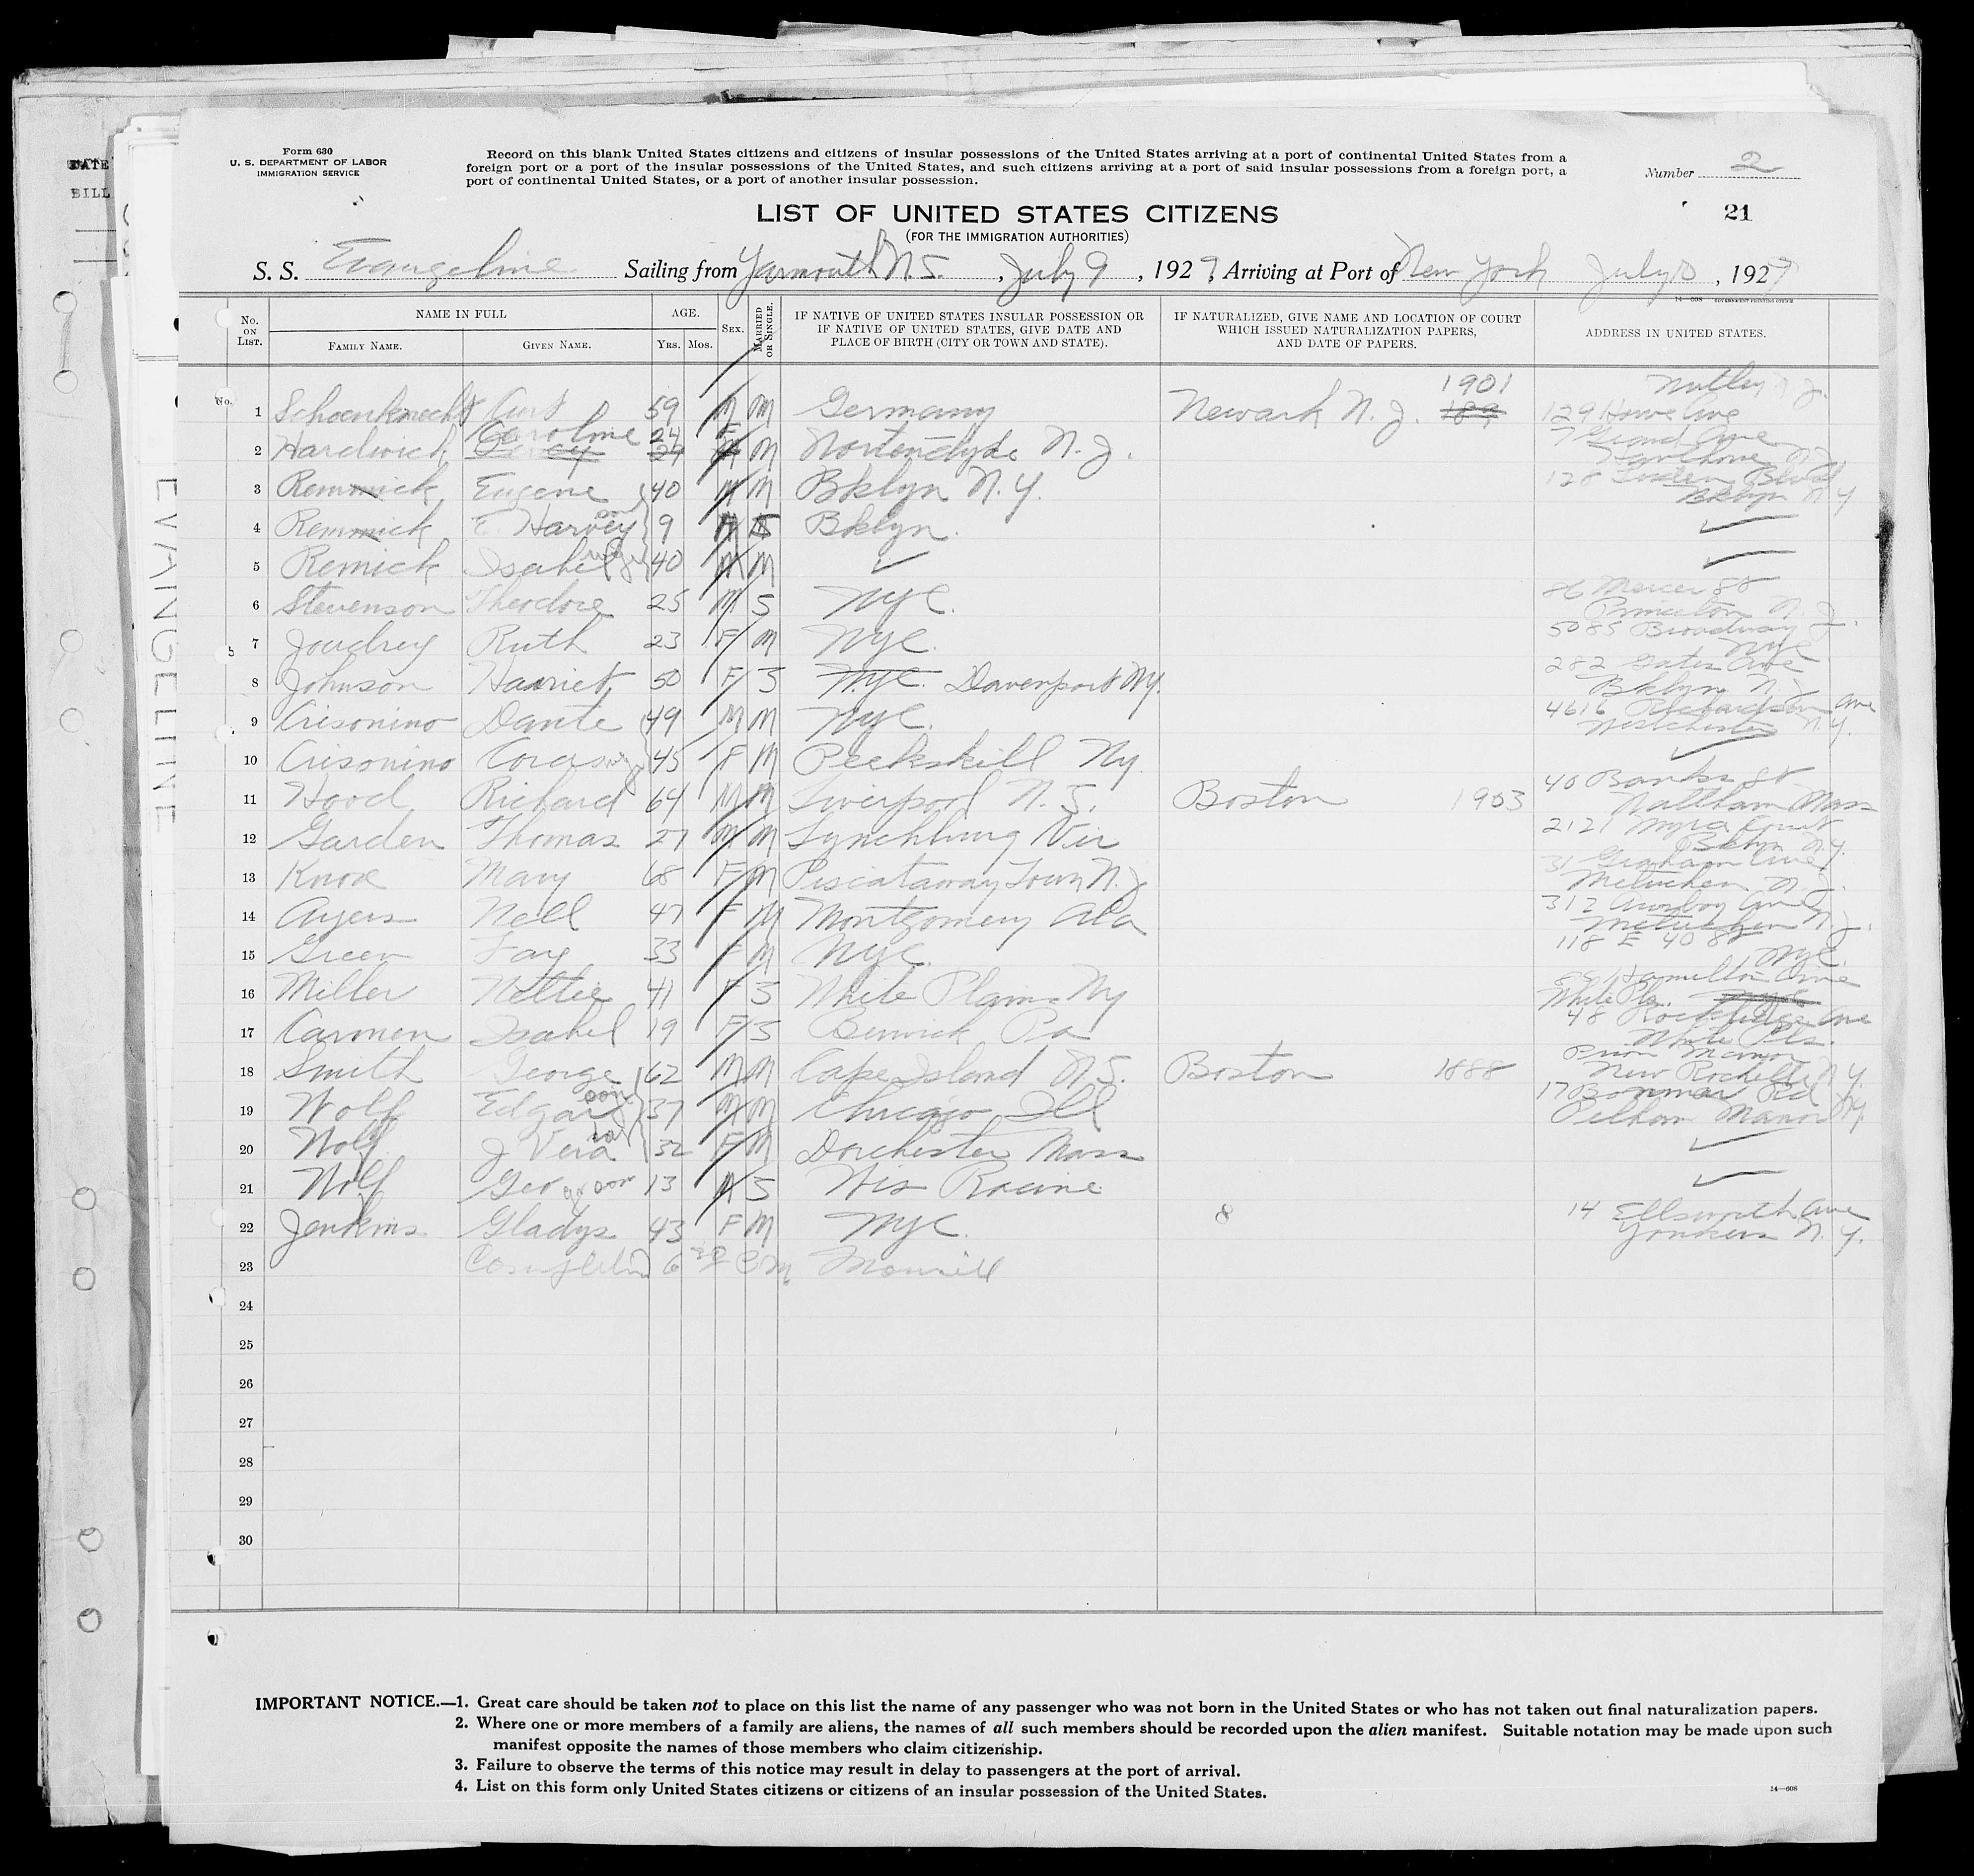 DATE
BILL
EVANGELINE
Form 630
U. S. DEPARTMENT OF LABOR
IMMIGRATION SERVICE
Record on this blank United States citizens and citizens of insular possessions of the United States arriving at a port of continental United States from a
foreign port or a port of the insular possessions of the United States, and such citizens arriving at a port of said insular possessions from a foreign port, a
port of continental United States, or a port of another insular possession.
Number 2
21
LIST OF UNITED STATES CITIZENS
(FOR THE IMMIGRATION AUTHORITIES)
S. S. Evangeline Sailing from Yarmouth N.S. , July 9 , 1927, Arriving at Port of New York July , 1927
14—608 GOVERNMENT PRINTING OFFICE
No. ON LIST. NAME IN FULL AGE. SEX. MARRIED OR SINGLE. IF NATIVE OF UNITED STATES INSULAR POSSESSION OR IF NATIVE OF UNITED STATES, GIVE DATE AND PLACE OF BIRTH (CITY OR TOWN AND STATE). IF NATURALIZED, GIVE NAME AND LOCATION OF COURT WHICH ISSUED NATURALIZATION PAPERS, AND DATE OF PAPERS. ADDRESS IN UNITED STATES.
FAMILY NAME. GIVEN NAME. YRS. MOS.
No.
1901 Nutley N. J.
1 Schoenknecht Curt 59 M M Germany Newark N. J. 189 129 Howe Ave
Caroline 24 F 7 Grand Ave
2 Hardwick Percy 27 M M N. J. Hawthorne N. J.
3 Remmick Eugene 40 M M Bklyn N.Y. 128 Linden Blvd
Bklyn N Y
4 Remmick E. Harvey son 9 M S Bklyn.
5 Remick Isabel wife 40 M M
86 Mercer St
6 Stevenson Theodore 25 M S NYC. Princeton N. J.
5085 Broadway
7 Joudrey Ruth 23 F M NYC. NYC
282 Gates Ave
8 Johnson Harriet 50 F S NYC. Davenport NY. Bklyn N. Y.
4616 Richardson Ave
9 Crisonino Dante 49 M M NYC. Westchester N. Y.
10 Crisonino Cora wife 45 F M Peekskill Ny
40 Banks St
11 Hood Richard 64 M M Liverpool N. S. Boston 1903 Waltham Mass
2121 Myra Court
12 Garden Thomas 27 M M Lynchburg Vir Bklyn N.Y.
31 Graham Ave
13 Knox Mary 68 F M Piscataway Town N. J Metuchen N. J.
312 Amboy Ave
14 Ayers Nell 47 F M Montgomery Ala Metuchen N. J.
118 E 40 St
15 Green Fay 33 F M NYC. NYC.
Hamilton Ave
16 Miller Nettie 41 F S White Plains Ny White Pls. NYC
48 Rockridge Ave
17 Carmen Isabel 19 F S Berwick Pa White Pls.
Manor
18 Smith George 62 M M Cape Island N. S. Boston 1888 New Rochelle N Y.
170 Bonmar Rd
19 Wolf Edgar son 37 M M Chicago Ill Pelham Manor NY.
20 Wolf J Vera 32 F M Dorchester Mass
21 Wolf Geo gr son 13 M S Wis Racine
22 Jenkins Gladys 43 F M NYC. 8 14 Ellsworth Ave
Yonkers N. Y.
23
24
25
26
27
28
29
30
IMPORTANT NOTICE.—1. Great care should be taken not to place on this list the name of any passenger who was not born in the United States or who has not taken out final naturalization papers.
2. Where one or more members of a family are aliens, the names of all such members should be recorded upon the alien manifest. Suitable notation may be made upon such
manifest opposite the names of those members who claim citizenship.
3. Failure to observe the terms of this notice may result in delay to passengers at the port of arrival.
4. List on this form only United States citizens or citizens of an insular possession of the United States.
14—608